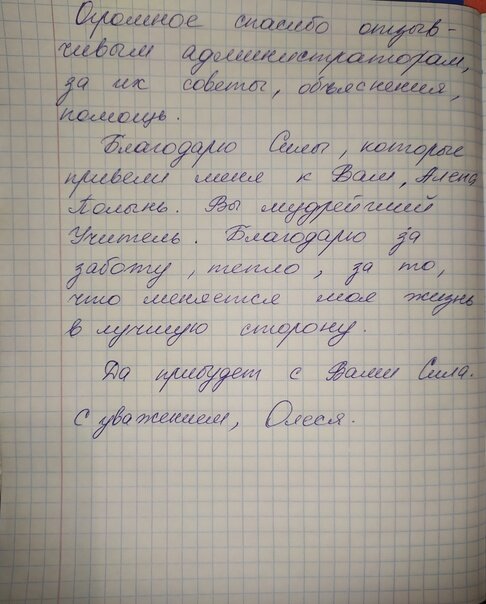 Огромное спасибо отзыв-
чивым администраторам,
за их советы, объяснения,
помощь.
Благодарю Силы, которые
привели меня к Вам, Алена
Полынь. Вы мудрейший
Учитель. Благодарю за
заботу, тепло, за то,
что меняется моя жизнь
в лучшую сторону.
Да прибудет с Вами Сила.
С уважением, Олеся.